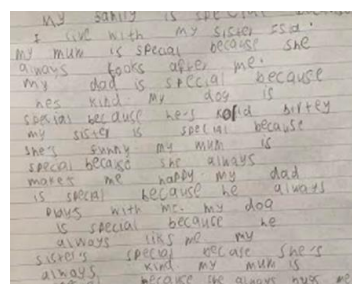 My family is special because
I live with my sister
my mum is special because she
always looks after me.
my dad is special because
hes kind. my dog is
special because he's
my sister is special because
she's funny my mum is
special because she always
makes me happy my dad
is special because he always
plays with me. my dog
is special because he
always liks me my
sister's special because she's
always kind my mum is
because she always hugs me